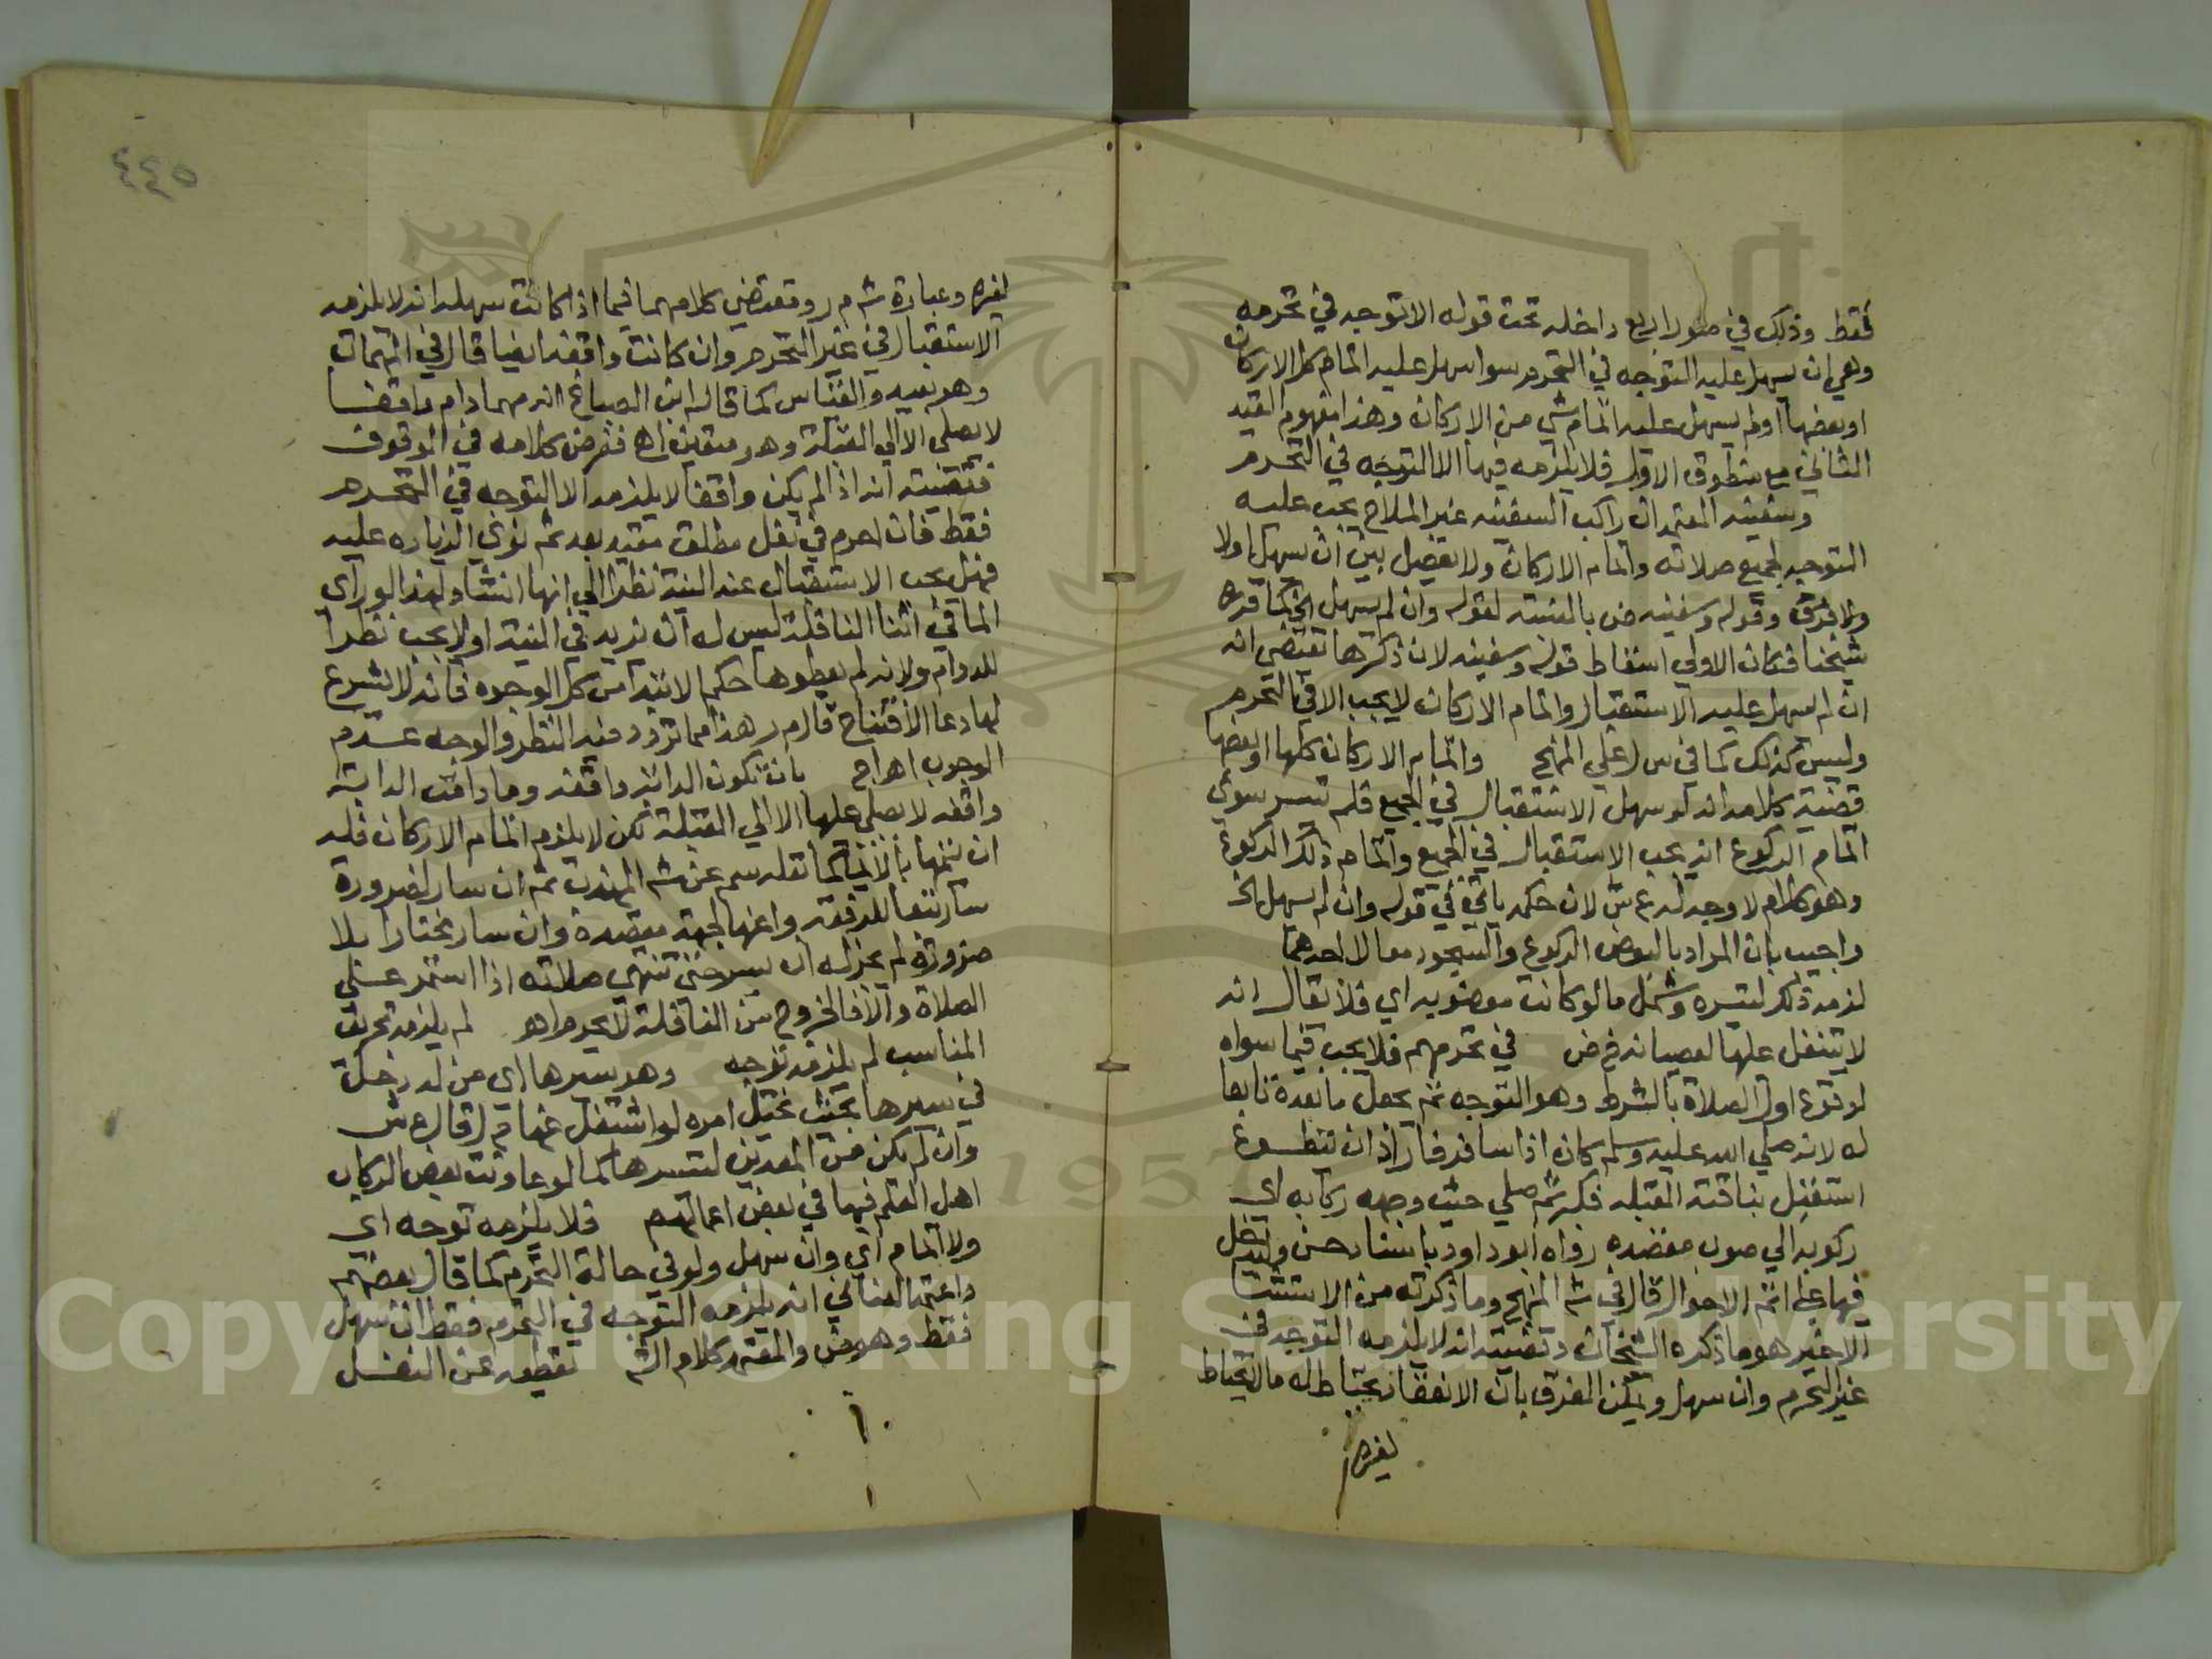 فقط وذلك في صور اربع داخله تحت قوله الا توجه في تحرمه
وهي ان يسهل عليه التوجه في التحرم سوا سهل عليه اتمام كل الاركان
او بعضها او لم يسهل عليه اتمام شي من الاركان وهذا مفهوم القيد
الثاني مع منطوق الاول فلا يلزمه فيها الا التوجه في التحرم
وسفينه المعتمد ان راكب السفينه غير الملاح يجب عليه
التوجه لجميع صلاته واتمام الاركان ولا تفصيل بين ان يسهل اولا
ولا فرق وقوله وسفينه ض بالنسبة لقوله وان لم يسهل الخ كما قرره
شيخنا فكان الاولي اسقاط قوله وسفينه لان ذكرها تقتضي انه
ان لم يسهل عليه الاستقبال واتمام الاركان لا يجب الا في التحرم
وليس كذلك كما في س ل علي المنهج واتمام الاركان كلها او بعضها
قضية كلامه انه لو سهل الاستقبال في الجميع فلم تيسر سوي
اتمام الركوع انه يجب الاستقبال في الجميع واتمام ذلك الركوع
وهو كلام لا وجه له ع ش لان حكمه ياتي في قوله وان لم يسهل الخ
واجيب بان المراد بالبعض الركوع والسجود معا لا احدهما
لزمه ذلك لتيسره وشمل ما لو كانت مغصوبه اي فلا يقال انه
لا يتنفل عليها لعصيانه ح ض في تحرمهم فلا يجب فيما سواه
لوقوع اول الصلاة بالشرط وهو التوجه ثم يجعل ما بعده تابعا
له لانه صلي الله عليه وسلم كان اذا سافر فاراد ان يتطوع
استقبل بناقته القبله فكبر ثم صلي حيث وجهه ركابه اي
ركوبه الي صوب مقصده رواه ابو داود باسناد حسن وليدخل
فيها علي اتم الاحوال قال في شم المنهج وما ذكرته من الاستثنا
الاخير هو ما ذكره الشيخان وقضيته انه لا يلزمه التوجه في
غير التحرم وان سهل ويمكن الفرق بان الانعقاد يحتاط له ما لا يحتاط
لغيره
٤٤٥
لغيره وعبارة شم م ر ومقتضي كلامهما فيما اذا كانت سهله انه لا يلزمه
الاستقبال في غير التحرم وان كانت واقفه ايضا قال في المهمات
وهو بعيد والقياس كما قاله ابن الصباغ انه مهما دام واقفا
لا يصلي الا الي القبلة وهو متعين اه ففرض كلامه في الوقوف
فقضيته انه اذا لم يكن واقفا لا يلزمه الا التوجه في التحرم
فقط فان احرم في نفل مطلق مقيد بعدد ثم نوي الزياده عليه
فهل يجب الاستقبال عند النية نظرا الي انها انشا ولهذا لو راي
الما في اثنا النافلة ليس له ان يزيد في النية او لا يجب نظرا
للدوام ولانه لم يعطوها حكم الابتدا من كل الوجوه فانه لا يشرع
لها دعا الافتتاح قال م ر هذا مما تردد فيه النظر والوجه عدم
الوجوب اه اج بان تكون الدابة واقفه وما دامت الدابة
واقفه لا يصلي عليها الا الي القبلة لكن لا يلزم اتمام الاركان فله
ان يتمها بالايما كما نقله سم عن شم المهذب ثم ان سار لضرورة
سار تبعا للرفقه واتمها لجهة مقصده وان سار مختارا بلا
ضرورة لم يجز له ان يسير حتي تنتهي صلاته اذا استمر علي
الصلاة والا فالخروج من النافلة لا يحرم اه لم يلزمه تحريف
المناسب لم يلزمه توجه وهو مسيرها اي من له دخل
في سيرها بحيث يختل امره لو اشتغل عنها م ر قال ع ش
وان لم يكن من المعدين لتسييرها كما لو عاونت بعض الركاب
اهل العلم فيها في بعض اعمالهم فلا يلزمه توجه اي
ولا اتمام اي وان سهل ولو في حالة التحرم كما قال بعضهم
واعتمد العناني انه يلزمه التوجه في التحرم فقط ان سهل
فقط وهو ض والمعتمد كلام الشم لقطعه عن النفل